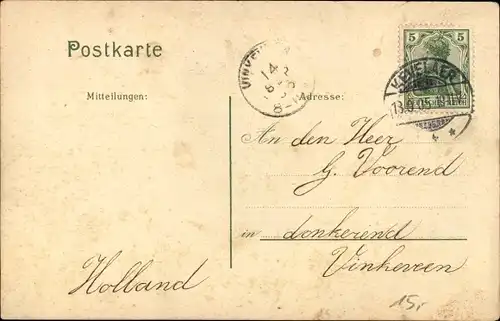 Postkarte
Mitteilungen:
Adresse:
5 5
KEVELAER
An den Heer
G. Voorend
in donkereind
Vinkeveen
Holland
15,-